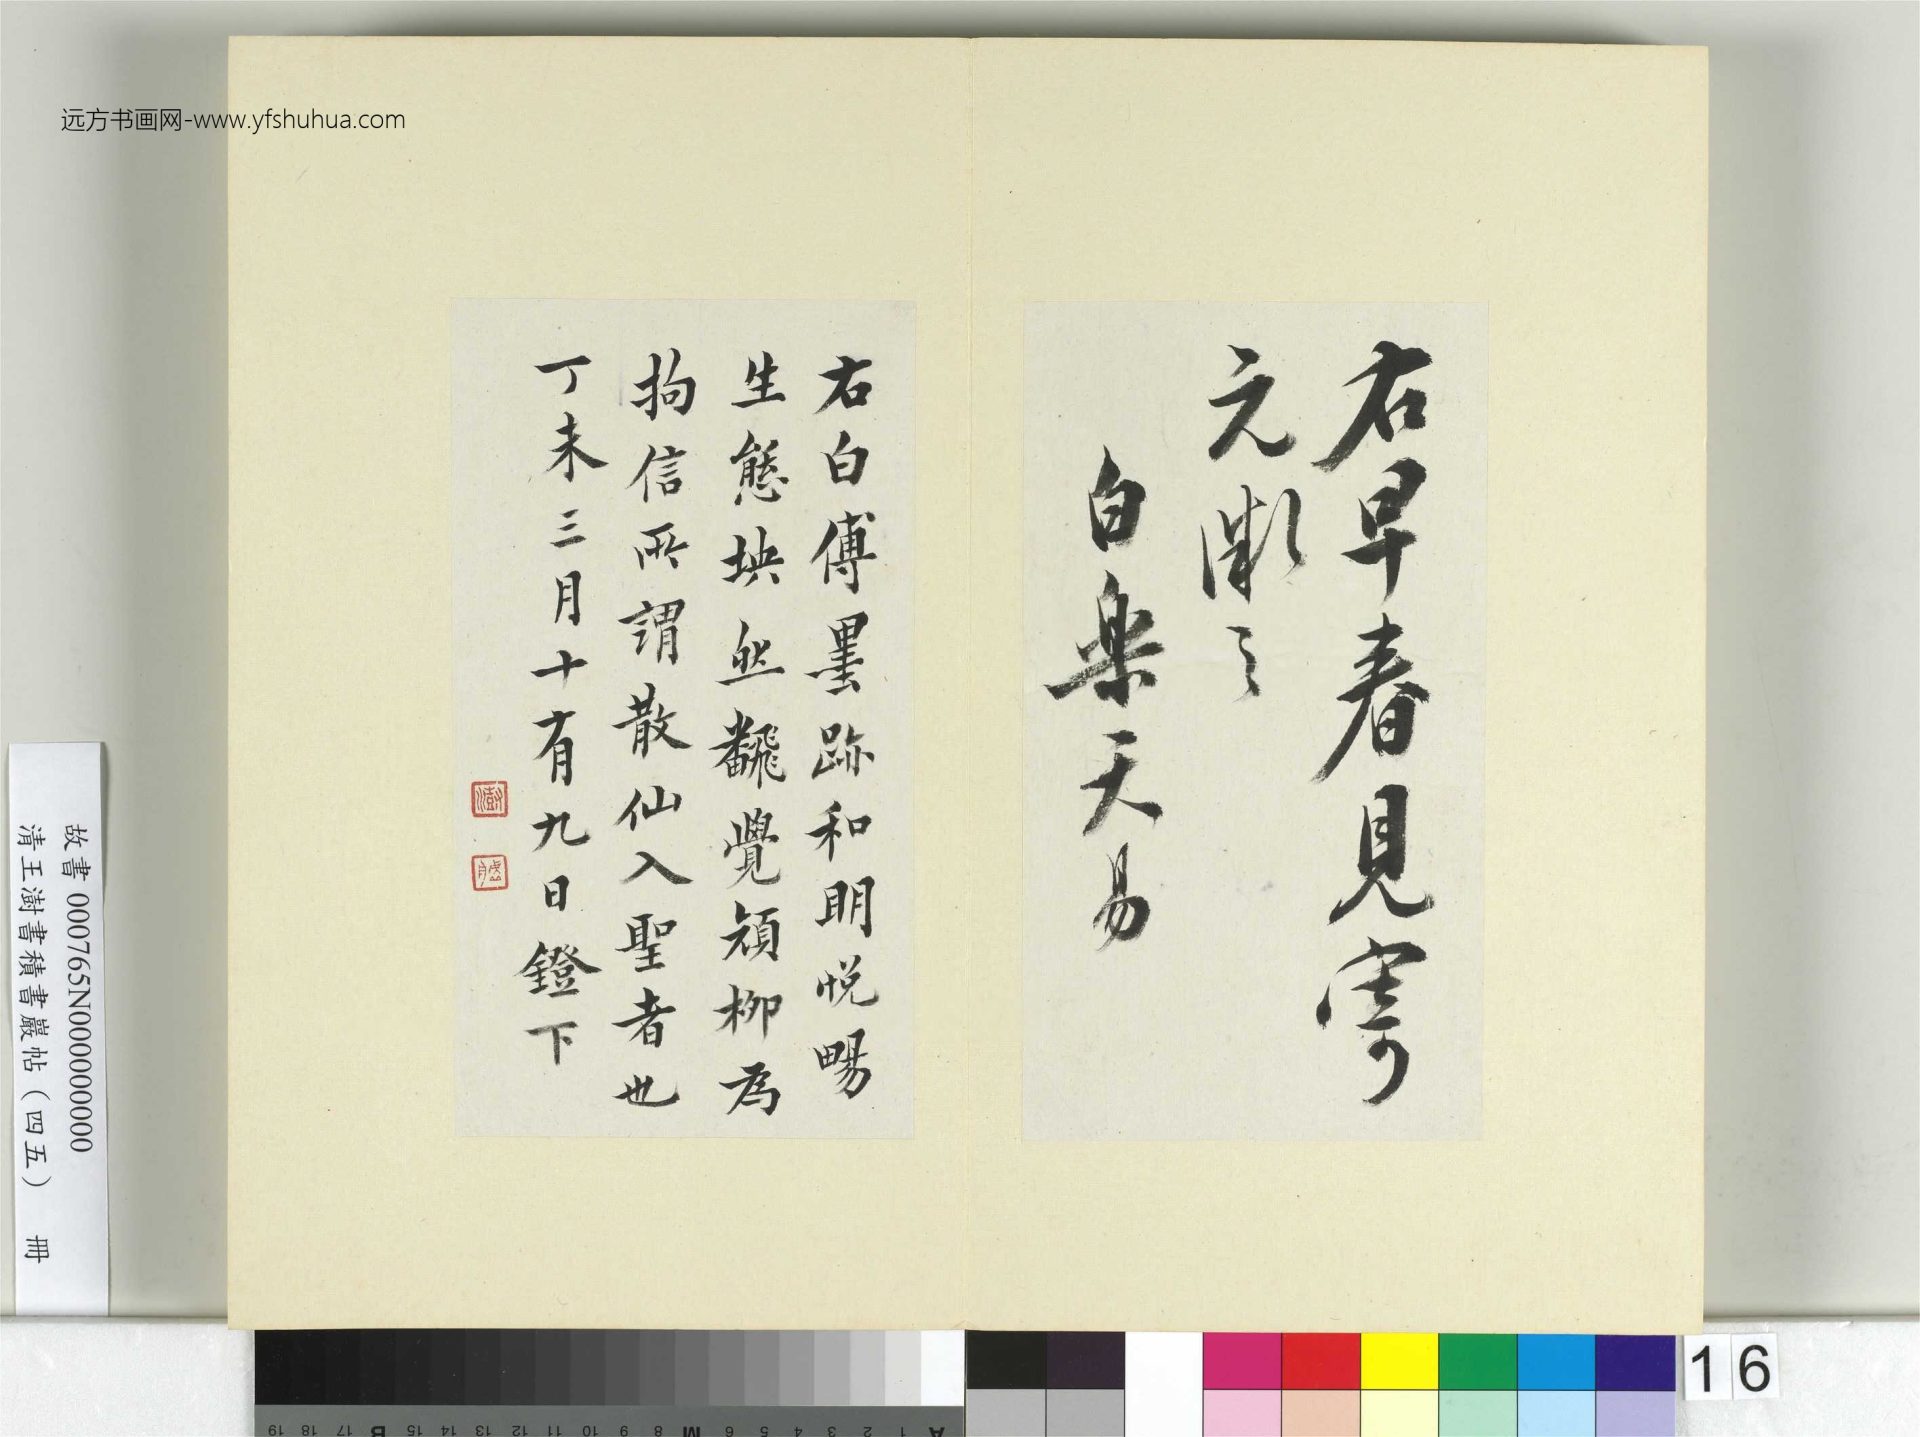 远方书画网-www.yfshuhua.com
右早春見寄
元微之
白樂天易
右白傅墨跡和明悅暢
生態坱然翻覺顏柳為
拘信所謂散仙入聖者也
丁未三月十有九日鐙下
澍
故書 000765N000000000
清王澍書積書巖帖（四五） 冊
16
19 18 17 B 15 14 13 12 11 10 9 8 M 6 5 4 3 2 1 A